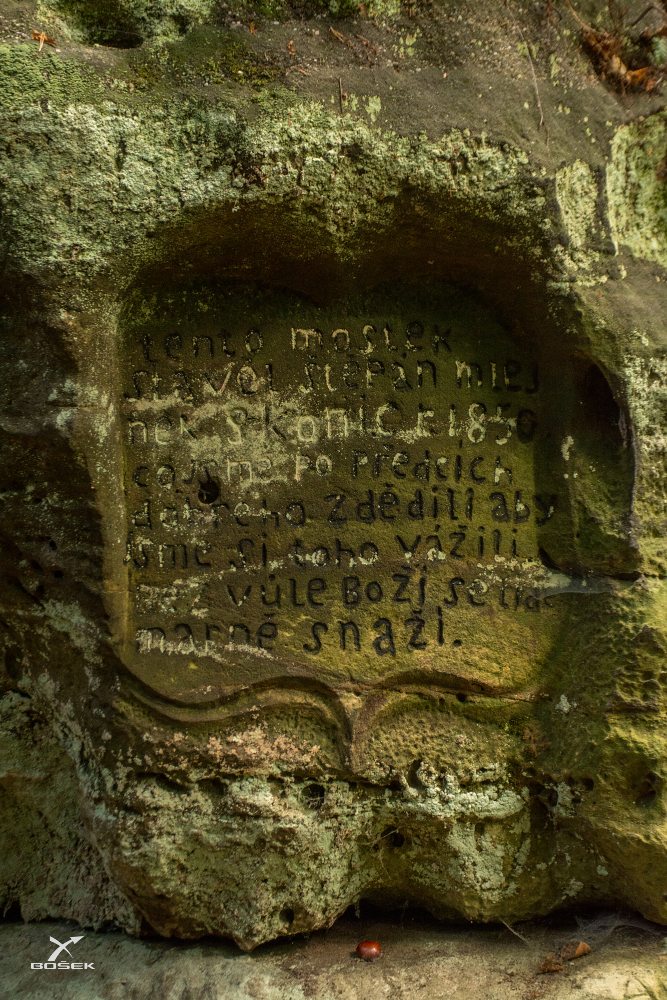 tento mostek
stavěl štěpán mlej
nék s konic r. 1850.
co jsme po předcích
dobreho zdědili aby
sme si toho vážili.
bez vůle Boží se lide
marně snaží.
BOŠEK